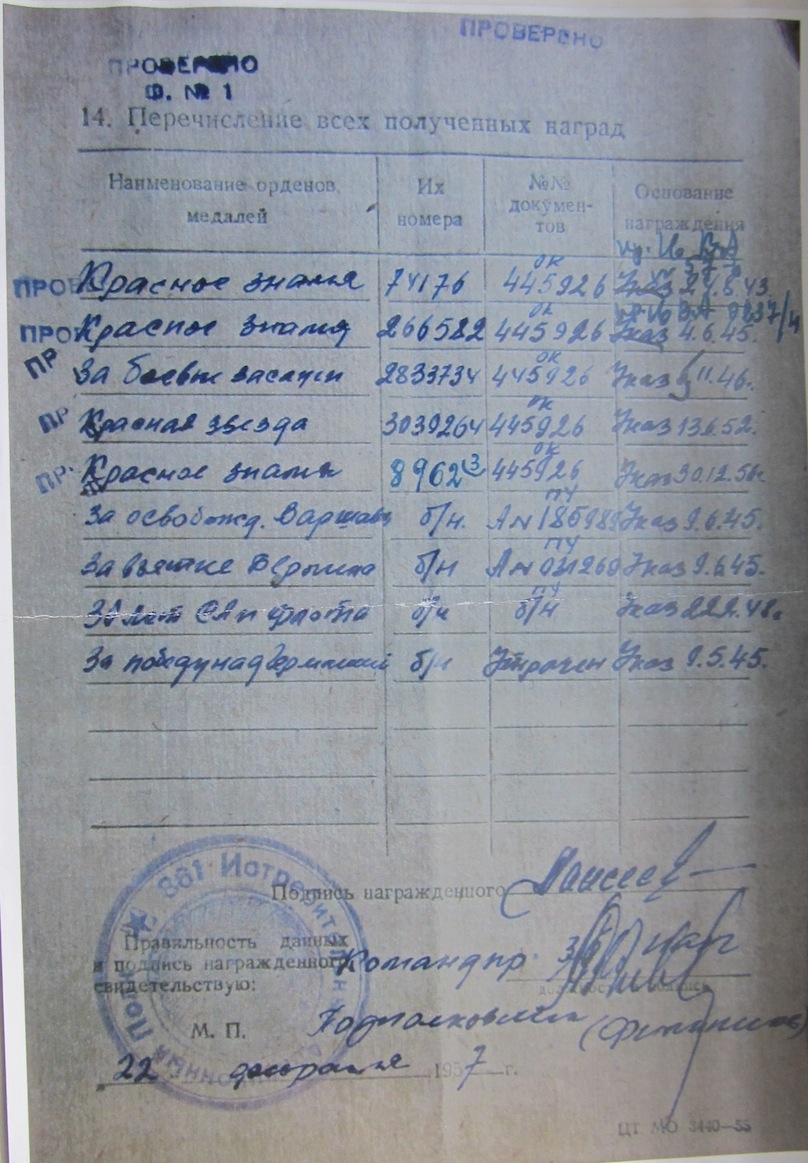 ПРОВЕРЕНО
ПРОВЕРЕНО
Ф. № 1
14. Перечисление всех полученных наград
Наименование орденов, медалей
Их номера
№№ докумен-тов
Основание награждения
Красное знамя 74176 ОК 445926 Указ 24.8.43.
Красное знамя 266582 ОК 445926 Указ 4.6.45.
За боевые заслуги 2833734 ОК 445926 Указ 11.46.
Красная звезда 3039264 ОК 445926 Указ 13.6.52.
Красное знамя 89623 ОК 445926 Указ 30.12.56.
За освобожд. Варшавы б/н. ПУ А№ 185989 Указ 9.6.45.
За взятие Берлина б/н ПУ А№ 031260 Указ 9.6.45.
лет СА и флота б/н ПУ б/н Указ 22.2.48.
За победу над Германией б/н Утрачен Указ 9.5.45.
861 Истребительный Полк
Подпись награжденного
Правильность данных
и подпись награжденного
свидетельствую:
Командир
М. П.
Подполковник
22 февраля 1957 г.
ЦТ МО 3440—55